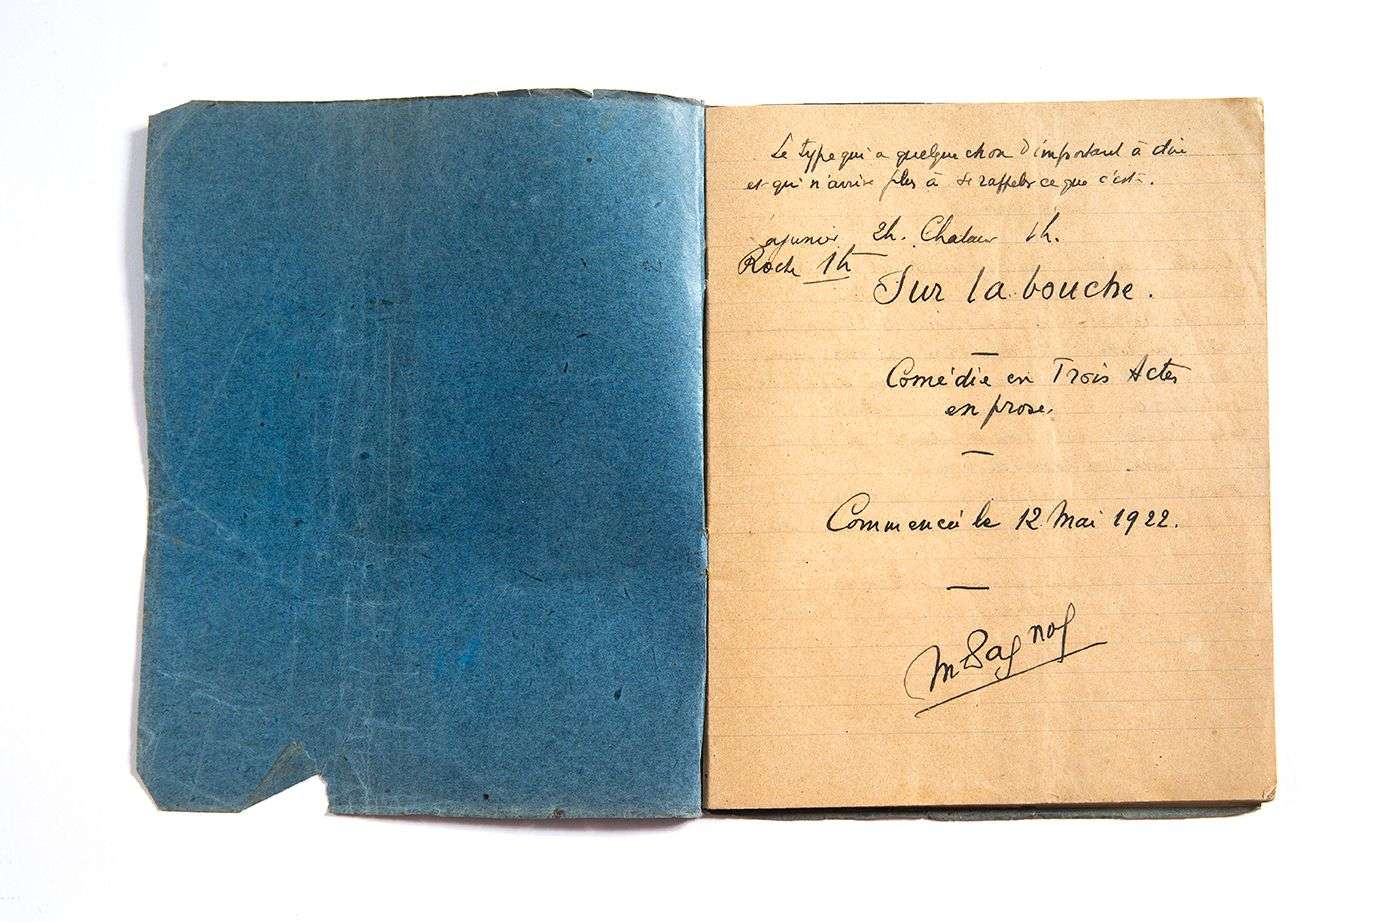 Le type qui a quelque chose d'important à dire
et qui n'arrive plus à se rappeler ce que c'est.
2h. 1h.
Roch 1h
Sur la bouche.
Comédie en Trois Actes
en prose.
Commencée le 12 Mai 1922.
M Pagnol